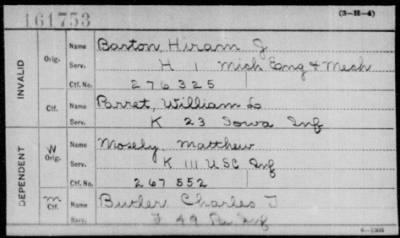 161753
(3-H-4)
INVALID
Orig.
Name Barton, Hiram J
Serv. H 1 Mich Eng & Mech
Ctf. No. 276325
Ctf.
Name Parret, William
Serv. K 23 Iowa Inf
DEPENDENT
W Orig.
Name Mosely, Matthew
Serv. K 111 USC Inf
Ctf. No. 267552
Ctf.
Name Butler Charles T
Serv. F 49 Pa Inf